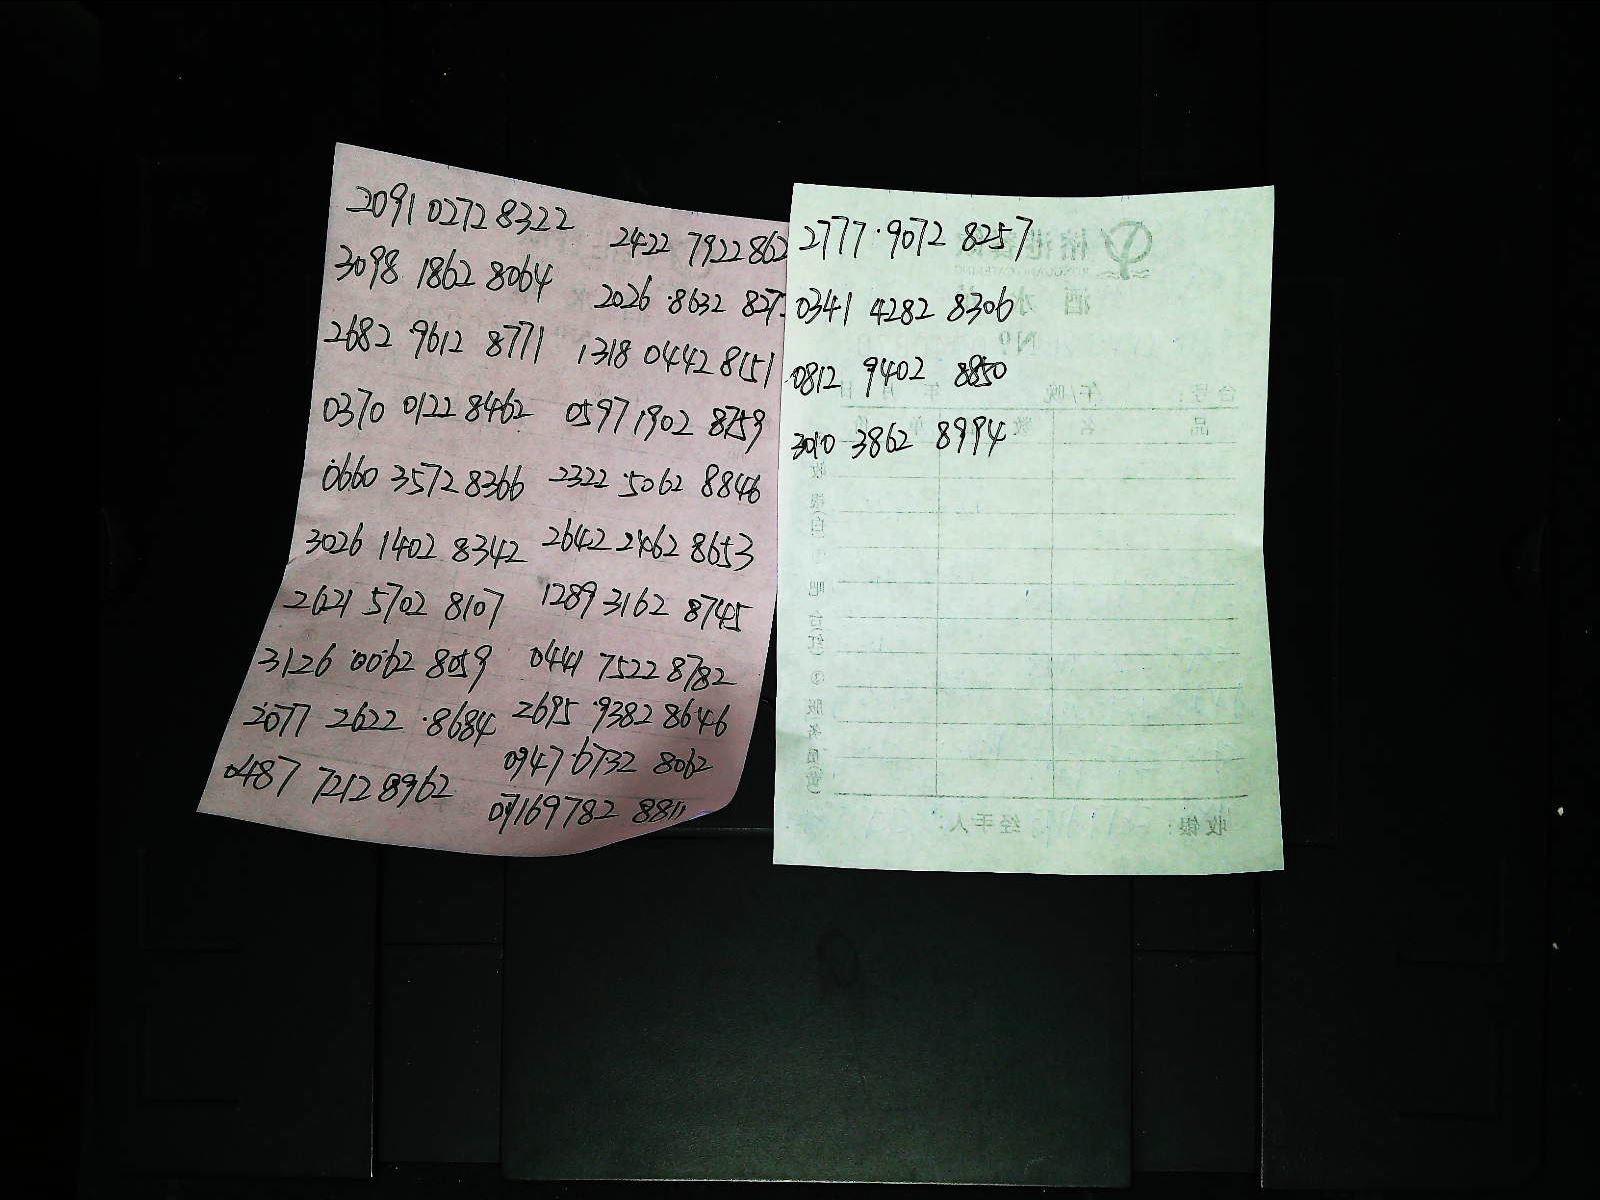 2091 0272 8322
3098 1862 8064
2682 9612 8771
0370 0122 8462
0660 3572 8366
3026 1402 8342
2621 5702 8107
3126 0062 8059
2077 2622 8684
0487 7212 8962
2422 7922 862
2026 8632 827
1318 0442 8151
0597 1902 8759
2322 5062 8846
2642 2462 8653
1289 3162 8745
0441 7522 8782
2695 9382 8646
0947 6732 8062
0716 9782 8811
2777 9072 8257
0341 4282 8306
0812 9402 8850
3010 3862 8994
酒水
No
台号: 午/晚 年 月 日
品 名 数 单
收
银
(白)
①
吧
台
(红)
③
服
务
员
(黄)
收银: 经手人: